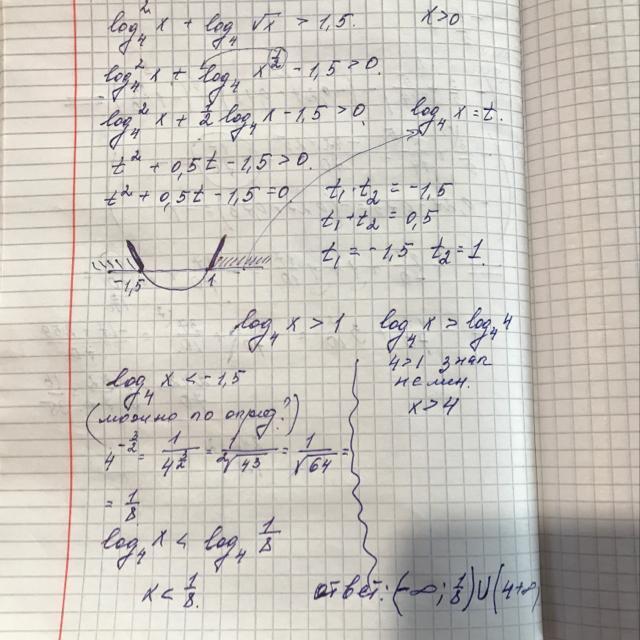 log₄² x + log₄ √x > 1,5. x>0
log₄² x + log₄ x^(1/2) − 1,5 > 0.
log₄² x + 1/2 log₄ x − 1,5 > 0 log₄ x = t.
t² + 0,5t − 1,5 > 0.
t² + 0,5t − 1,5 = 0 t₁ · t₂ = −1,5
t₁ + t₂ = 0,5
t₁ = −1,5 t₂ = 1.
−1,5 1
log₄ x > 1 log₄ x > log₄ 4
4>1 знак
не мен.
x > 4
log₄ x < −1,5
(можно по опред?)
4^(−3/2) = 1/4^(3/2) = 1/²√4³ = 1/√64 =
= 1/8
log₄ x < log₄ 1/8
x < 1/8.
ответ: (−∞; 1/8) U (4+∞)